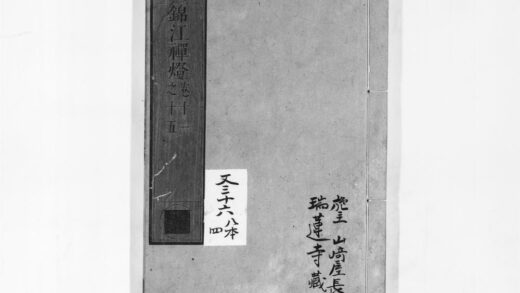 錦江禪燈 卷十一
之十五
又三十六 八本
四
施主 山﨑屋長
瑞蓮寺藏